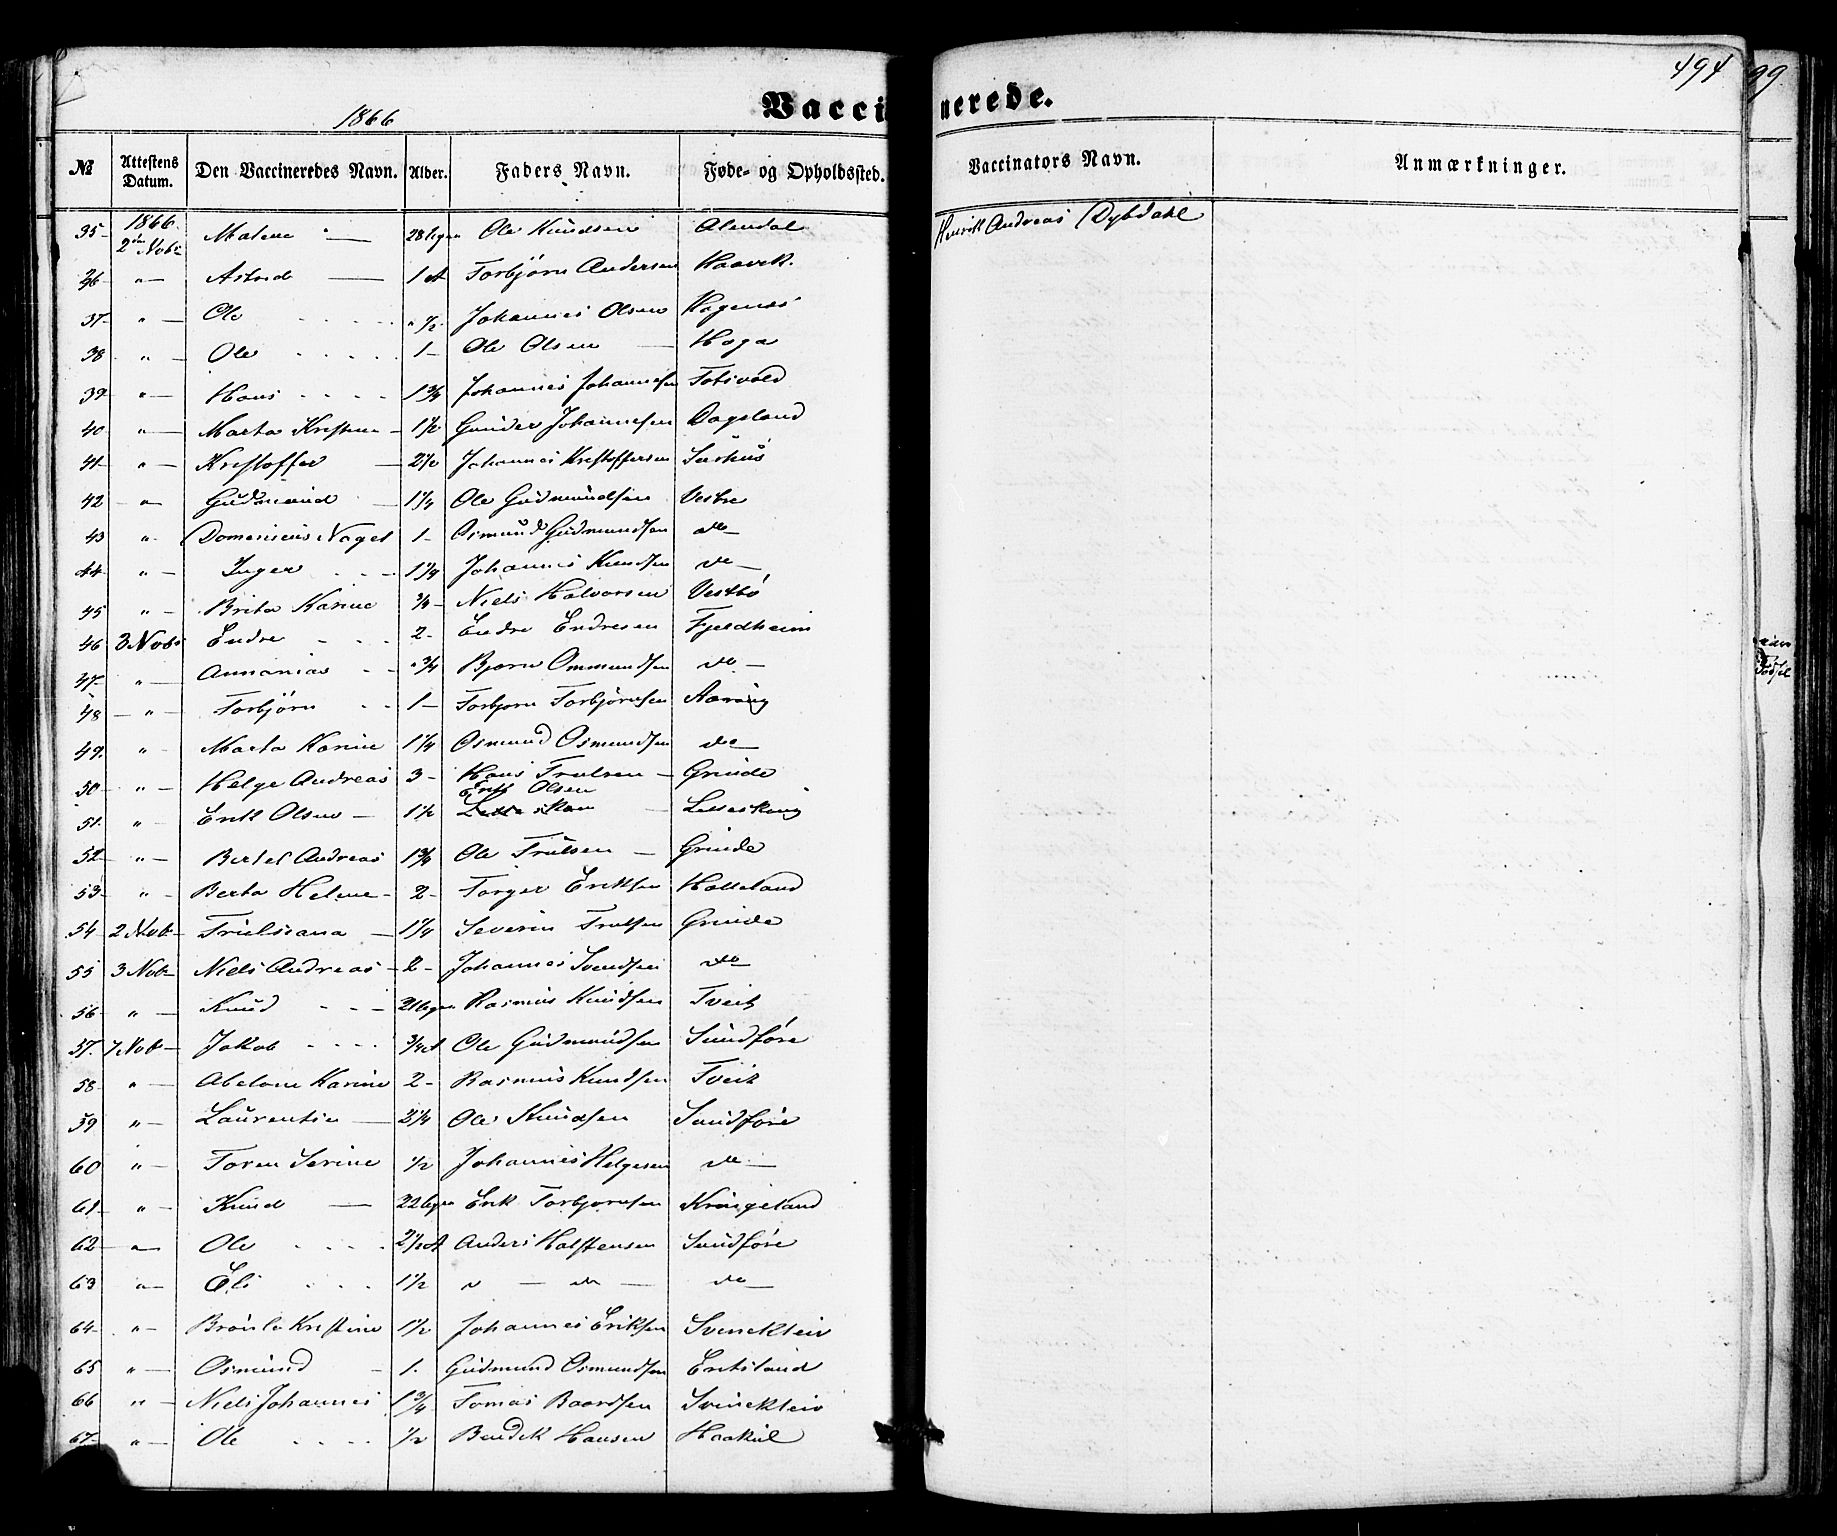 494
99
1866
Vaccinerede.
№ Attestens Datum. Den Vaccineredes Navn. Alder. Faders Navn. Føde- og Opholdssted. Vaccinators Navn. Anmærkninger.
35 1866 2den Novbr Malene — 28 Ugen Ole Knudsen Alendal Henrik Andreas Dybdahl
36 " — Astrid — 1 A Torbjörn Andersen Haavik.
37 " — Ole " 1/2 Johannes Olsen Hagenæs
38 " — Ole 1 — Ole Olsen — Haga
39 " — Hans 1 3/4 Johannes Johannesen Totsvold
40 " — Marta Kristine — 1 1/2 Gunder Johannesen Dagsland
41 " — Kristoffer — 2 1/2 Johannes Kristoffersen
42 " Gudmund — 1 1/4 Ole Gudmundsen Vestre
43 " Domenicus Nagel 1 — Osmund Gudmundsen do —
44 " — Inger 1 1/4 Johannes Knudsen do —
45 " — Brita Karine 3/4 — Niels Halvorsen Vestbö
46 3 Novbr Endre 2 — Endre Endresen Fjeldheim
47 " — Annanias " 3/4 Bjørn Ommundsen do —
48 — " — Torbjörn 1 — Torbjorn Torbjörnsen Aarvig
49. " Marta Karine 1 1/4 Osmund Osmundsen do —
50 " — Helge Andreas 3 — Hans Trulsen — Grinde
Erik Olsen
51. " — Erik Olsen — 1 1/2
52 " — Bertel Andreas 1 3/4 Ole Trulsen — Grinde
53 " — Berta Helene — 2 — Torger Eriksen Halleland
54 2 Nob — Trulsiana — 1 1/4 Severin Trulsen Grinde
55 3 Nob — Niels Andreas — 2 — Johannes Svendsen do
56 " — Knud 21 Ugen Rasmus Knudsen Tveit
57. 7 Nob — Jakob 3/4 A Ole Gudmundsen Sundföre
58 " — Abelone Karine 2 — Rasmus Knudsen Tveit
59 " — Laurentse — 2 1/4 Ole Knudsen Sundföre
60 " — Toren Serine 1/2 Johannes Helgesen do —
61 " — Knud — 22 Ugen Erik Torbjornsen Kringeland
62 " Ole 2 1/2 A Anders Halstensen Sundföre
63 " — Eli 1 1/2 " — do — do —
64 " — Kristine 1 1/2 Johannes Eriksen
65 " — Osmund — 1. Gudmund Osmundsen Eriksland
66 " — Niels Johannes 1 3/4 Tomas Baardsen
67 " — Ole 1/2 Bendik Hansen Haakul